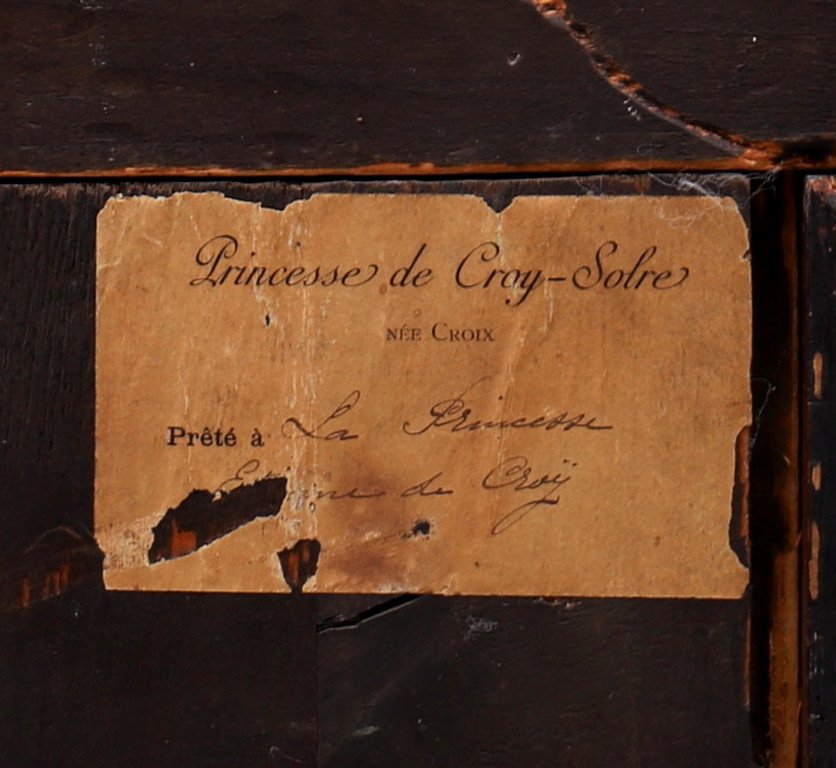 Princesse de Croy-Solre
NÉE CROIX
Prêté à La Princesse
de Croÿ